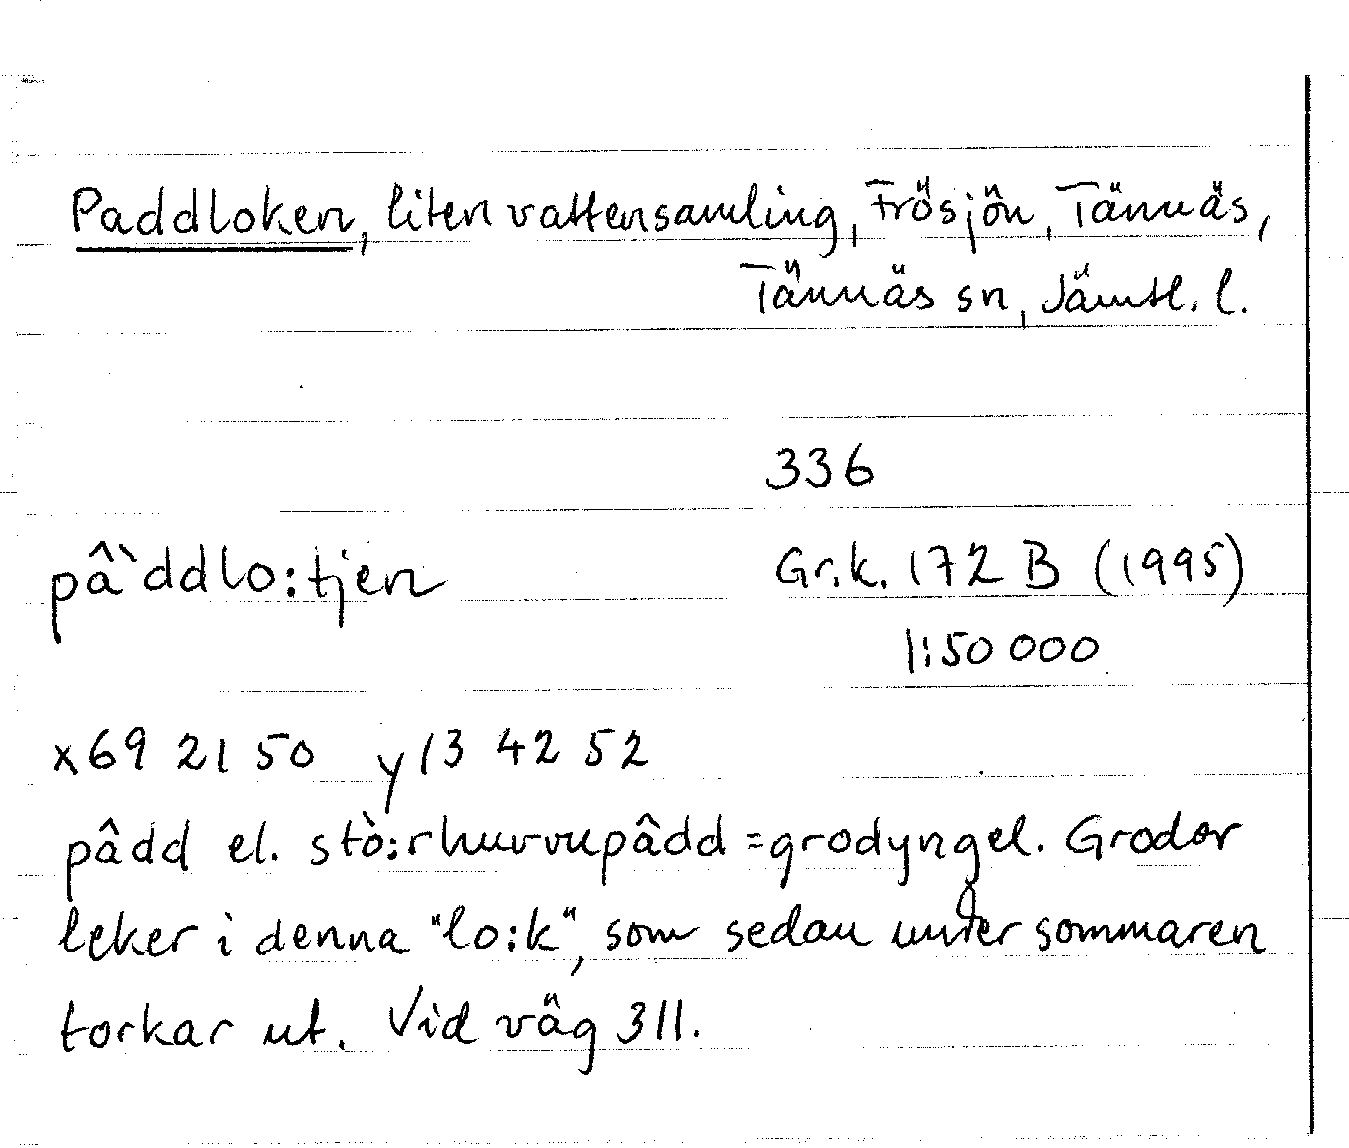 Paddloken, liten vattensamling, Frösjön, Tännäs,
Tännäs sn, Jämtl. l.
336
pâ`ddlo:tjen
Gr.k. 172 B (1995)
1:50 000
x69 21 50 y13 42 52
pâdd el. stò:rhuvvupâdd = grodyngel. Grodor
leker i denna "lo:k", som sedan under sommaren
torkar ut. Vid väg 311.